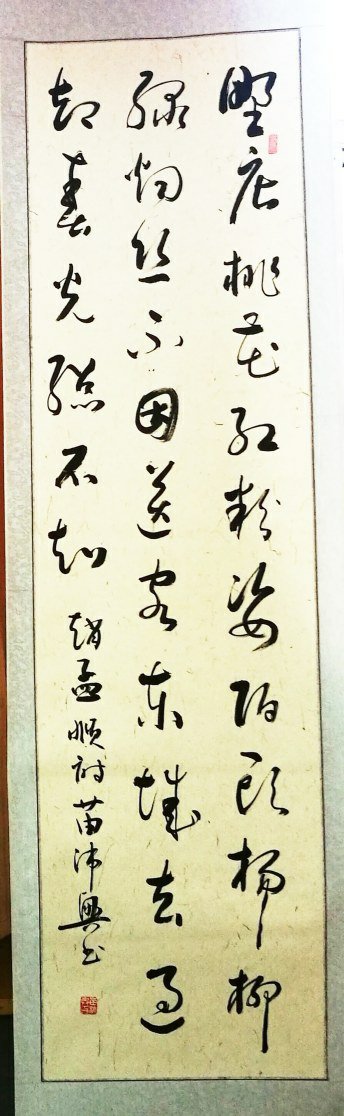 野店桃花红粉姿陌头杨柳
绿烟丝不因送客东城去过
却春光总不知
趙孟頫诗苗沛興书